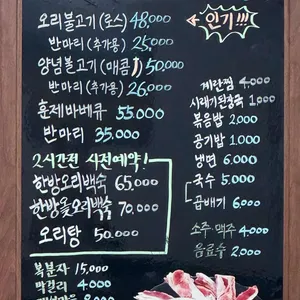 오리불고기(로스) 48,000
반마리(추가용) 25,000
양념불고기(매콤!) 50,000
반마리(추가용) 26,000
훈제바베큐 55,000
반마리 35,000
2시간전 사전예약!
한방오리백숙 65,000
한방옻오리백숙 70,000
오리탕 50,000
복분자 15,000
막걸리 4,000
인기!!!
계란찜 4,000
시래기된장국 1,000
볶음밥 2,000
공기밥 1,000
냉면 6,000
국수 5,000
곱배기 6,000
소주·맥주 4,000
음료수 2,000